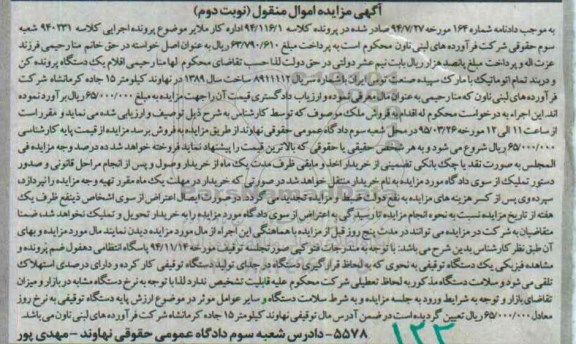 آگهی مزایده اموال منقول (نوبت دوم)
به موجب دادنامه شماره ۱۶۴ مورخه ۹۴/۷/۲۷ صادر شده در پرونده کلاسه ۹۴/۱۱۶/۱ اداره کار ملایر موضوع پرونده اجرایی کلاسه ۹۴۰۲۳۱ شعبه
سوم حقوقی شرکت فرآورده های لبنی تاون محکوم است به پرداخت مبلغ ۶۳/۷۹۰/۶۱۰ ریال به عنوان اصل خواسته در حق خانم منا رحیمی فرزند
عزت اله و پرداخت مبلغ پانصد هزار ریال بابت نیم عشر دولتی در حق دولت لذا حسب تقاضای محکوم لها منا رحیمی اقلام یک دستگاه پرکن
و دربند تمام اتوماتیک با مارک سپیده صنعت توس ایران با شماره سریال ۸۹۱۱۱۱۲ ساخت سال ۱۳۸۹ در نهاوند کیلومتر ۱۵ جاده کرمانشاه شرکت
فرآورده های لبنی تاون که منا رحیمی به عنوان مال معرفی نموده و ارزیاب دادگستری قیمت آن را جهت مزایده به مبلغ ۶۵/۰۰۰/۰۰۰ ریال برآورد نموده
اند این اجراء به درخواست محکوم له اقدام به فروش ملک موصوف که توسط کارشناس به شرح ذیل توصیف و ارزیابی شده می نماید و مقرر است
از ساعت ۱۱ الی ۱۲ مورخه ۹۵/۰۳/۲۶ در محل شعبه سوم دادگاه عمومی حقوقی نهاوند از طریق مزایده به فروش برسد مزایده از قیمت پایه کارشناسی
۶۵/۰۰۰/۰۰۰ ریال شروع می شود و به هر شخص حقیقی یا حقوقی که بالاترین قیمت را پیشنهاد نماید فروخته خواهد شد ده درصد وجه مزایده فی
المجلس به صورت نقد یا چک بانکی تضمینی از خریدار اخذ و مابقی ظرف مدت یک ماه از خریدار وصول و پس از انجام مراحل قانونی و صدور
دستور تملیک از سوی دادگاه مورد مزایده به نام خریدار منتقل خواهد شد در صورتی که خریدار در مهلت یک ماه مقرر تهیه وجه مزایده را نپردازد،
سپرده وی پس از کسر هزینه های مزایده به نفع دولت ضبط و مزایده تجدید می گردد. در صورت ایصال اعتراض از سوی اشخاص ذینفع ظرف یک
هفته از تاریخ مزایده نسبت به نحوه انجام مزایده تا رسیدگی به اعتراض از سوی دادگاه مورد مزایده را به خریدار تحویل و تملیک نخواهد شد، ضمنا
متقاضیان به شرکت در مزایده می توانند در مدت پنج روز قبل از مزایده با هماهنگی این اجراء از مال مورد مزایده دیدن نمایند مال مورد مزایده و بهای
آن طبق نظر کارشناس بدین شرح می باشد: با توجه به مندرجات فتوکپی صورتجلسه توقیف مورخه ۹۴/۱۱/۱۴ پاسگاه انتظامی دهفول ضم پرونده و
مشاهده فیزیکی یک دستگاه توقیفی به نحوی که به لحاظ قرار گیری دستگاه در جای تولید دستگاه توقیفی کار کرده و دارای درصدی استهلاک
تلقی می شود و سلامت دستگاه مذکور به لحاظ تعطیلی شرکت محکوم علیه قابلیت تشخیص ندارد لذا با توجه به نرخ دستگاه مشابه در بازار و میزان
تقاضای بازار و توجه به شرایط ورود به جلسه مزایده و به شرط سلامت دستگاه و سایر عوامل موثر در موضوع ارزش پایه دستگاه توقیفی به نرخ روز
معادل ۶۵/۰۰۰/۰۰۰ ریال تعیین گردیده است در ضمن آدرس مال توقیفی نهاوند کیلومتر ۱۵ جاده کرمانشاه شرکت فرآورده های لبنی تاون می باشد.
۵۵۷۸- دادرس شعبه سوم دادگاه عمومی حقوقی نهاوند - مهدی پور
۱۲۳